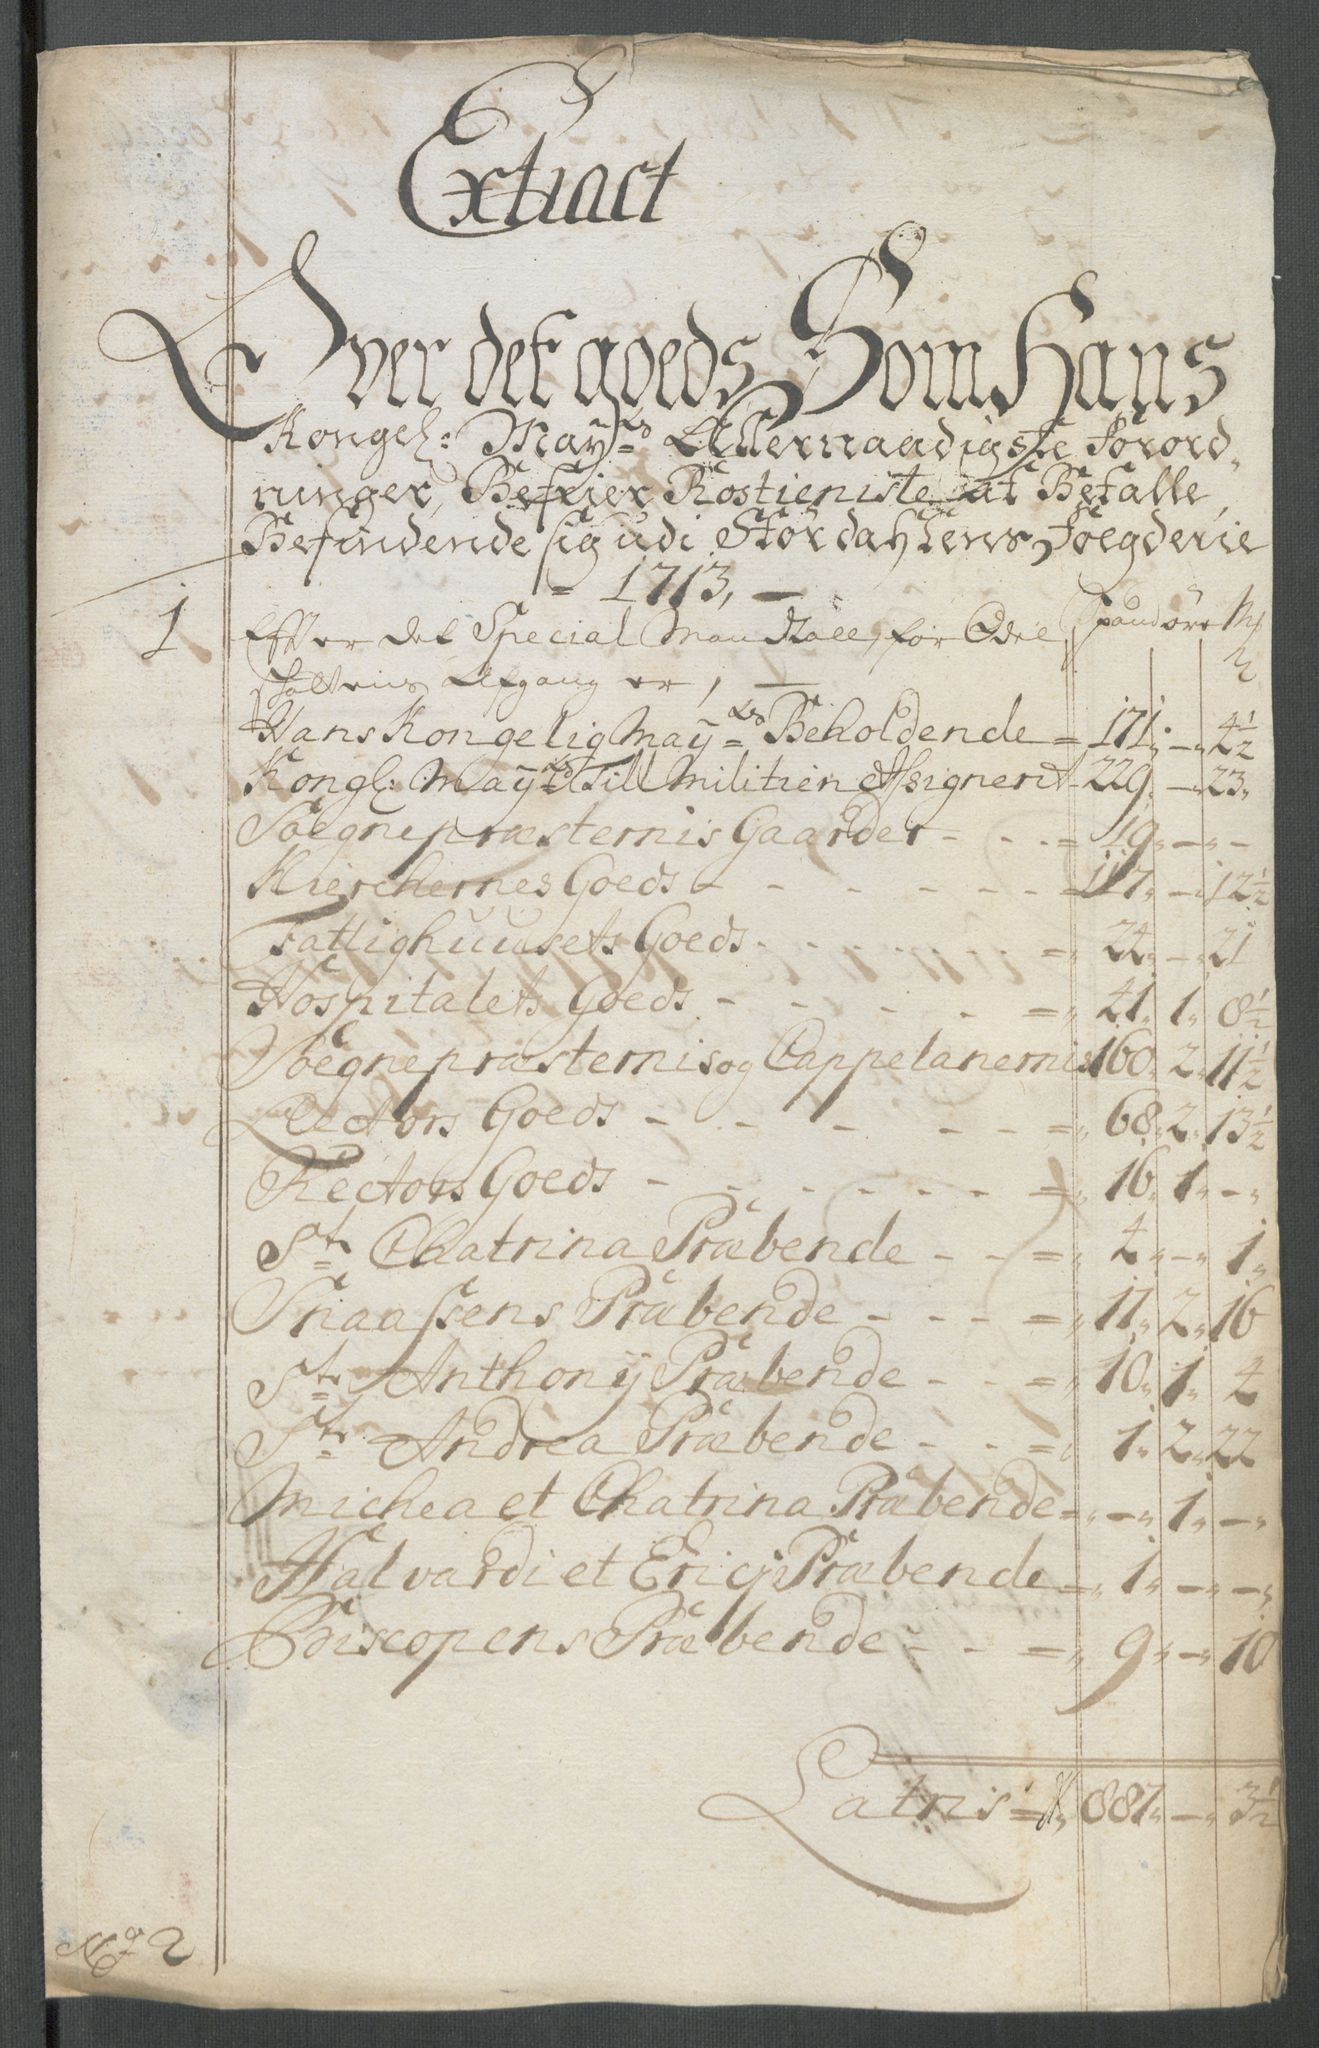 Extract
Over det goeds Som Hans
Kongel: Mayts Allernaadigste Forord,
ninger, Befrier Rostieniste at Befalle,
Befindende sig udi Størdahlens Foegderie
1713,
1 Effter det Special Mandtall, for Odel Spand øre Mk
Schattens Afgang er,
Hans Kongelig Mayts Beholdende = 171 - 4½
Kongl: Mayts Till Militien Assignerit - 229 - 23
Soegnepræsternis Gaarder - - - = 19 - -
Kierchernes Goeds - - - - - - = 117 - 12½
Fattighuusets Goeds - - - - = 24 - 21
Hospitalets Goeds - - - - - = 41 1 8½
Soegnepræsternis og Cappelanernis 160 2 11½
Lectors Goeds - - - - - - = 68 2 13½
Rectors Goeds - - - - - - = 16 1 -
St Chatrina Præbende - - = 4 - 1
Snaassens Præbende - - - = 11 2 16
St Anthonij Præbende - - = 10 1 4
St Andrea Præbende - - = 1 2 22
Michea et Chatrina Præbende = - 1 -
Halvardi et Ericij Præbende = 1 - -
Biscopens Præbende - - = 9 - 10
Latris = 887 - 3½
No 2